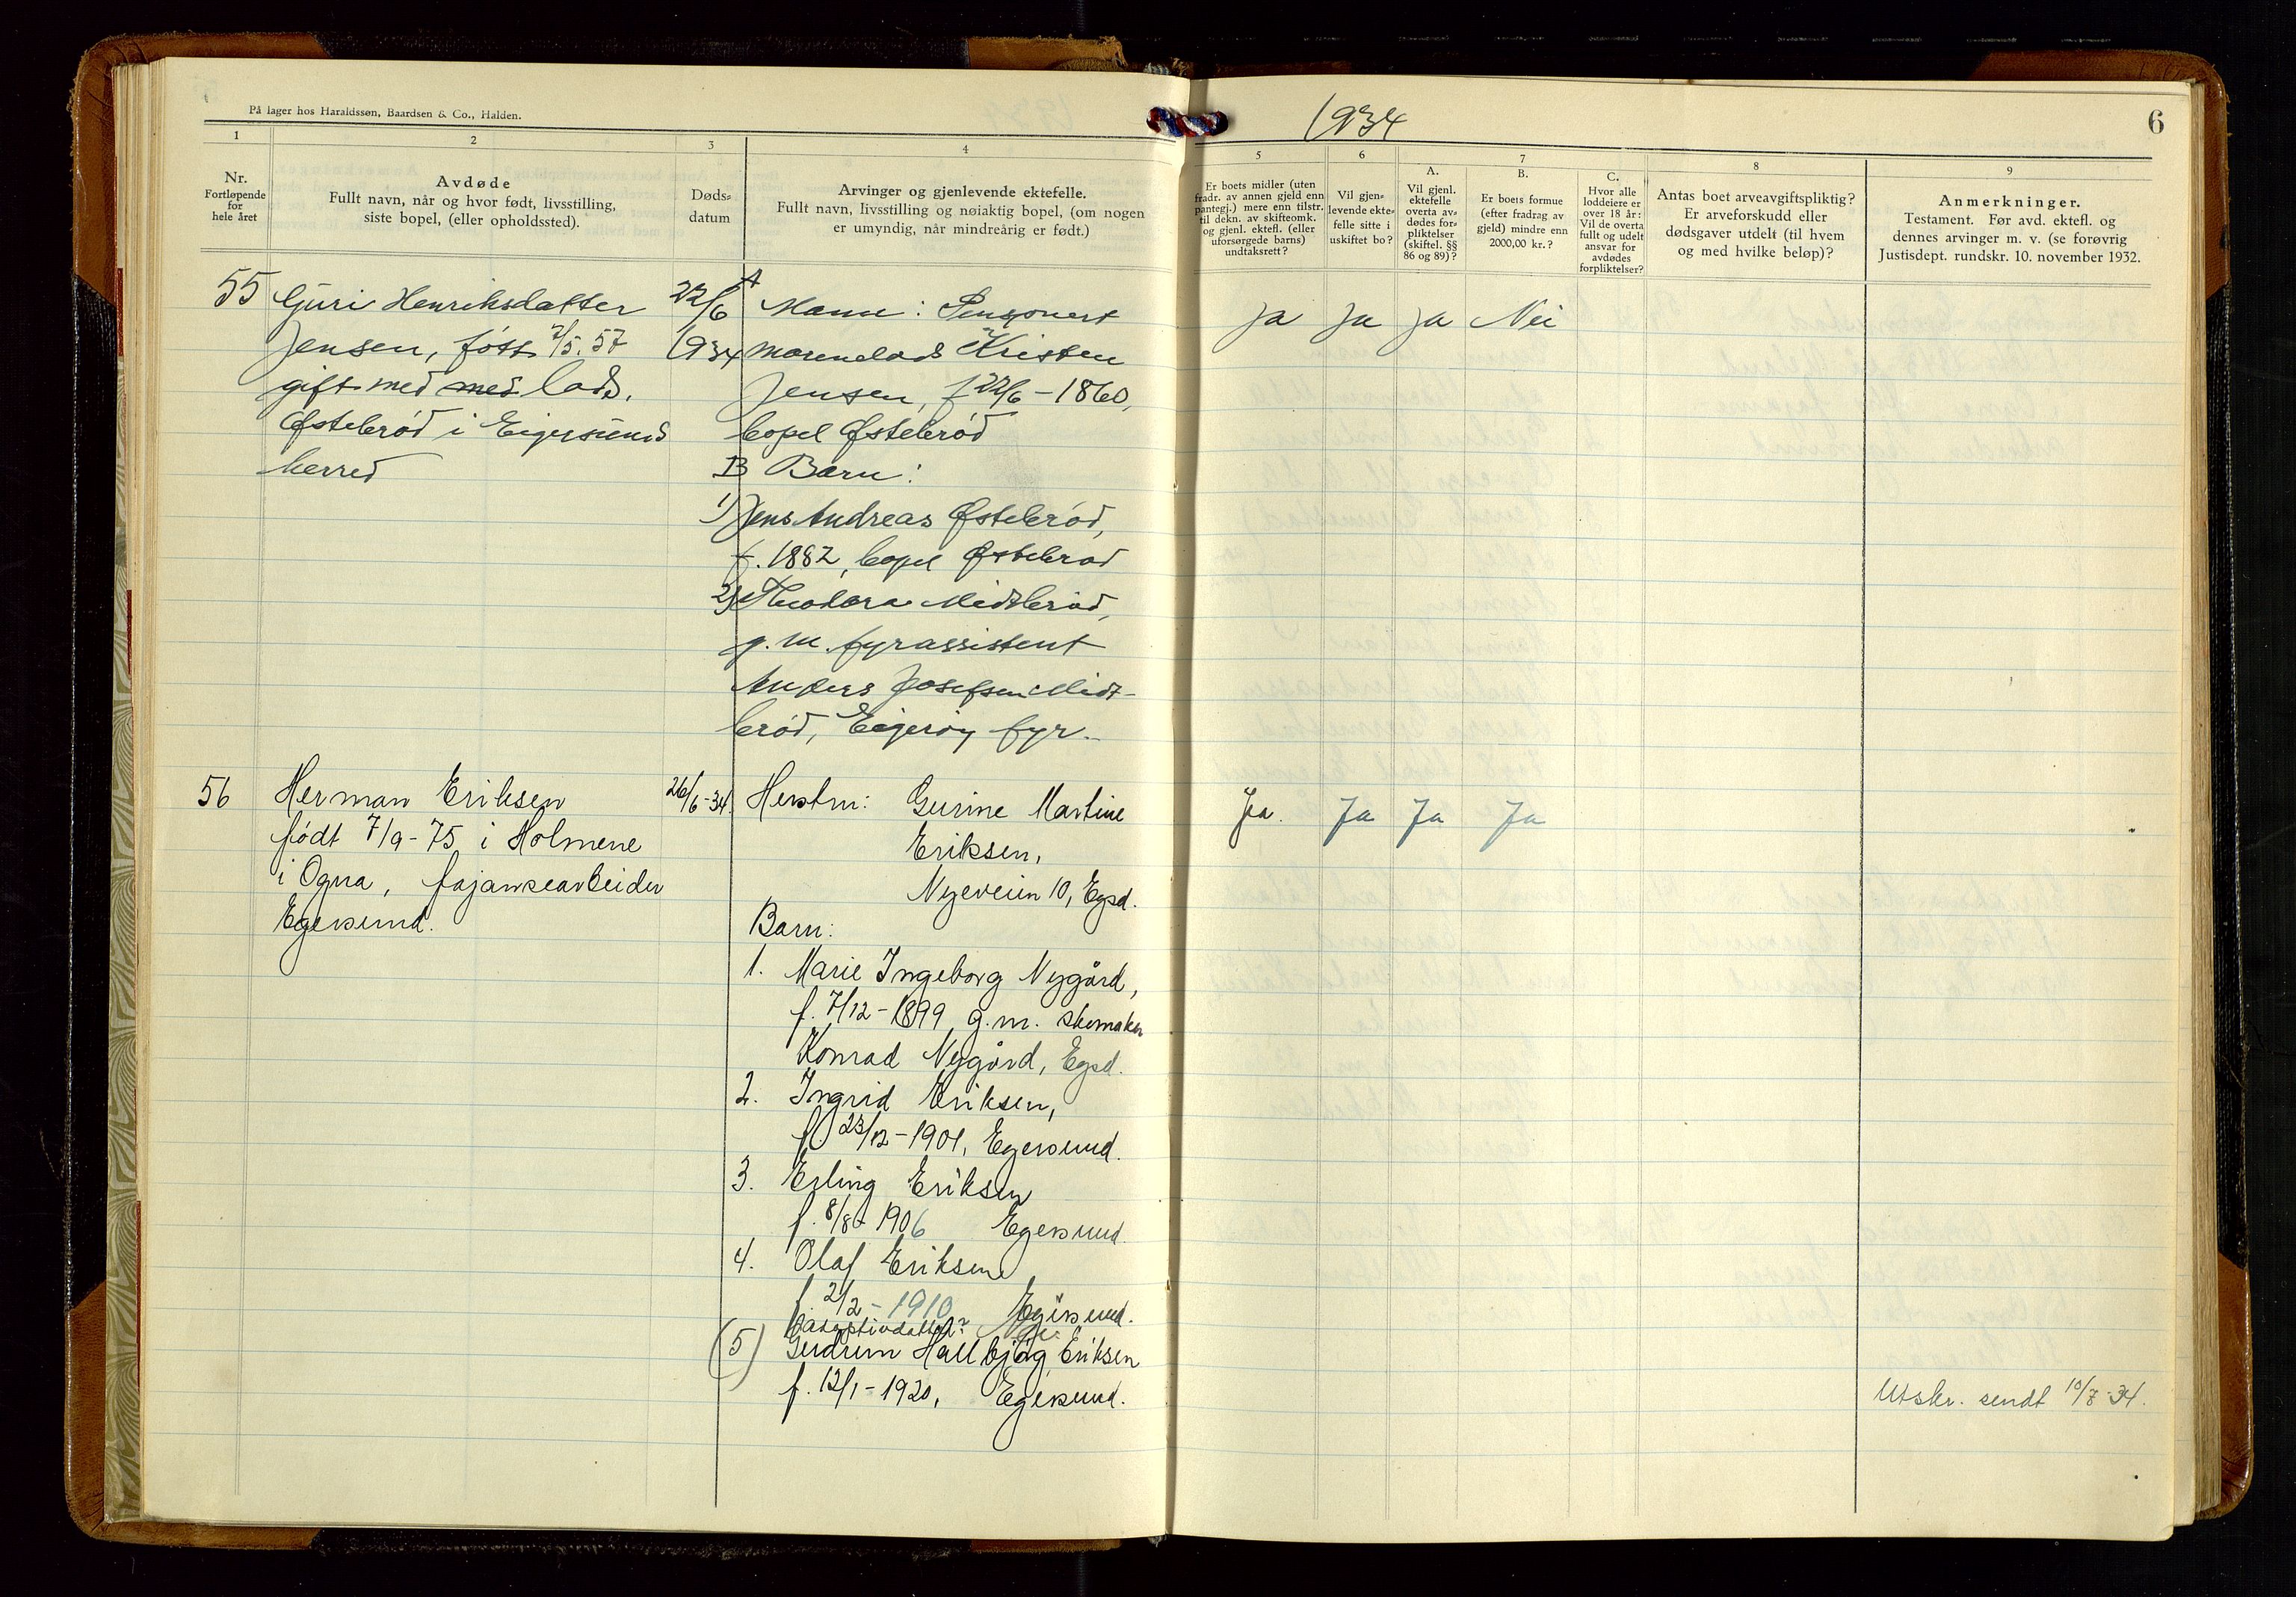 På lager hos Haraldssøn, Baardsen & Co., Halden.
1934
6
1
2
3
4
5
6
7
8
9
Nr.
Fortløpende
for
hele året
Avdøde
Fullt navn, når og hvor født, livsstilling,
siste bopel, (eller opholdssted).
Døds-
datum
Arvinger og gjenlevende ektefelle.
Fullt navn, livsstilling og nøiaktig bopel, (om nogen
er umyndig, når mindreårig er født.)
Er boets midler (uten
fradr. av annen gjeld enn
pantegj.) mere enn tilstr.
til dekn. av skifteomk.
og gjenl. ektefl. (eller
uforsørgede barns)
undtaksrett?
Vil gjen-
levende ekte-
felle sitte i
uskiftet bo?
A.
Vil gjenl.
ektefelle
overta av-
dødes for-
pliktelser
(skiftel. §§
86 og 89)?
B.
Er boets formue
(efter fradrag av
gjeld) mindre enn
2000,00 kr.?
C.
Hvor alle
loddeiere er
over 18 år:
Vil de overta
fullt og udelt
ansvar for
avdødes
forpliktelser?
Antas boet arveavgiftspliktig?
Er arveforskudd eller
dødsgaver utdelt (til hvem
og med hvilke beløp)?
Anmerkninger.
Testament. Før avd. ektefl. og
dennes arvinger m. v. (se forøvrig
Justisdept. rundskr. 10. november 1932.
55
Guri Henriksdatter
Jensen, født 2/5. 57
gift med med lods.
Østebrød i Eigersund
herred
22/6
1934
A
Mann: Pensjonert
Kristen
Jensen, f 22/6 - 1860,
bopel Østebrød
B Barn:
1) Jens Andreas Østebrød,
f. 1882, bopel Østebrød
2) Theodora Midtbrød,
g. m. fyrassistent
Anders Josefsen Midt-
brød, Eigerøy fyr.
Ja Ja Ja Nei
56
Herman Eriksen
født 7/9-75 i Holmene
i Ogna, fajansearbeider
Egersund.
26/6-34.
Hustru: Gurine Martine
Eriksen,
Nyeveien 10, Egsd.
Barn:
1. Marie Ingeborg Nygård,
f. 7/12-1899 g.m. skomaker
Konrad Nygård, Egsd.
2. Ingrid Eriksen,
f 23/12-1901, Egersund.
3. Erling Eriksen
f. 8/8-1906 Egersund.
4. Olaf Eriksen
f 2/2-1910 Egersund.
(5) Gudrun Hallbjög Eriksen
f. 12/1-1920, Egersund.
Ja. Ja Ja Ja
Utskr. sendt 10/8-34.